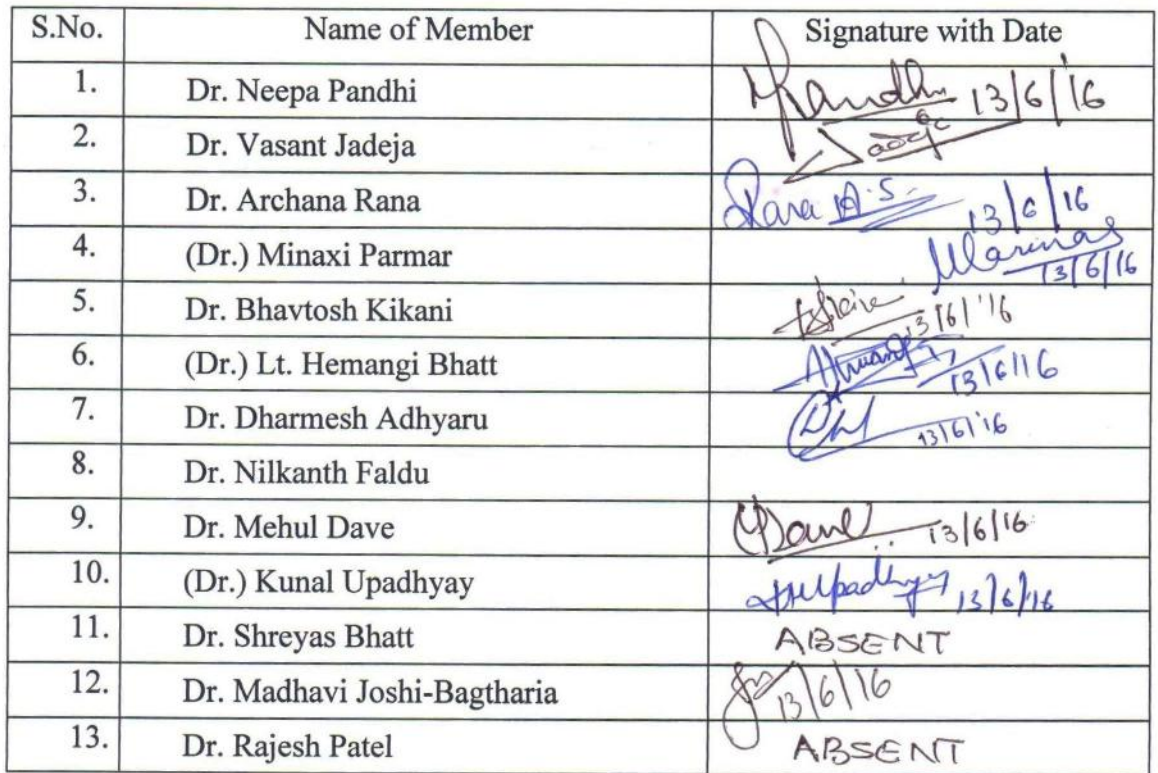 S.No. Name of Member Signature with Date
1. Dr. Neepa Pandhi Pandhi 13/6/'16
2. Dr. Vasant Jadeja
3. Dr. Archana Rana Rana A.S. 13/6/16
4. (Dr.) Minaxi Parmar 13/6/16
5. Dr. Bhavtosh Kikani 13/6/'16
6. (Dr.) Lt. Hemangi Bhatt 13/6/16
7. Dr. Dharmesh Adhyaru 13/6/'16
8. Dr. Nilkanth Faldu
9. Dr. Mehul Dave Dave 13/6/16
10. (Dr.) Kunal Upadhyay Upadhyay 13/6/16
11. Dr. Shreyas Bhatt ABSENT
12. Dr. Madhavi Joshi-Bagtharia 13/6/16
13. Dr. Rajesh Patel ABSENT